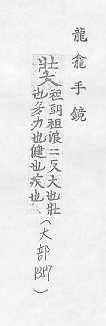 龍龕手鏡
奘
祖朗祖浪二反大也壯
也多力也健也疾也
(大部 357)